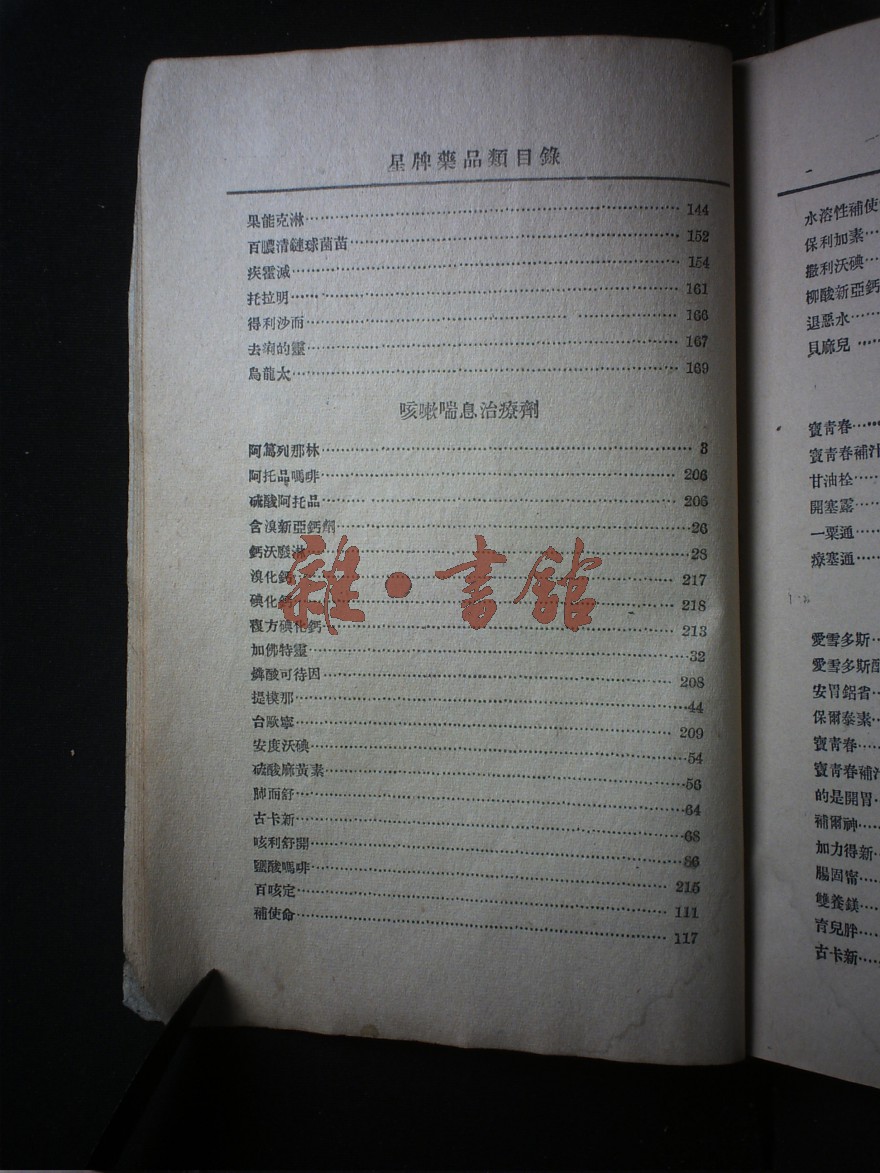 星牌藥品類目錄
果能克淋 144
百膿清鏈球菌苗 152
疾霍滅 154
托拉明 161
得利沙而 166
去痢的靈 167
烏龍太 169
咳嗽喘息治療劑
阿篤列那林 3
阿托品嗎啡 206
硫酸阿托品 206
含溴新亞鈣劑 26
鈣沃駿淋 28
溴化鈣 217
碘化鈣 218
複方碘化鈣 213
加佛特靈 32
燐酸可待因 208
提模那 44
台歐寧 209
安度沃碘 54
硫酸麻黃素 56
肺而舒 64
古卡新 68
咳利舒開 86
鹽酸嗎啡 215
百咳定 111
補使命 117
雜·書館
水溶性補使
保利加素
撒利沃碘
柳酸新亞鈣
退惡水
貝麻兒
寶青春
寶青春補汁
甘油栓
開塞露
一粟通
療塞通
愛雪多斯
愛雪多斯酏
安胃鋁省
保爾泰素
寶青春
寶青春補汁
的是開胃
補爾神
加力得新
腸固甯
雙養鎂
育兒胖
古卡新